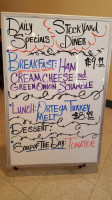 Daily Stockyard
Specials Diner
Breakfast: Ham $9.99
Cream Cheese and
Green Onion Scramble
Lunch: Ortega Turkey
Melt $8.99
Dessert:
Soup of the Day: Tomato